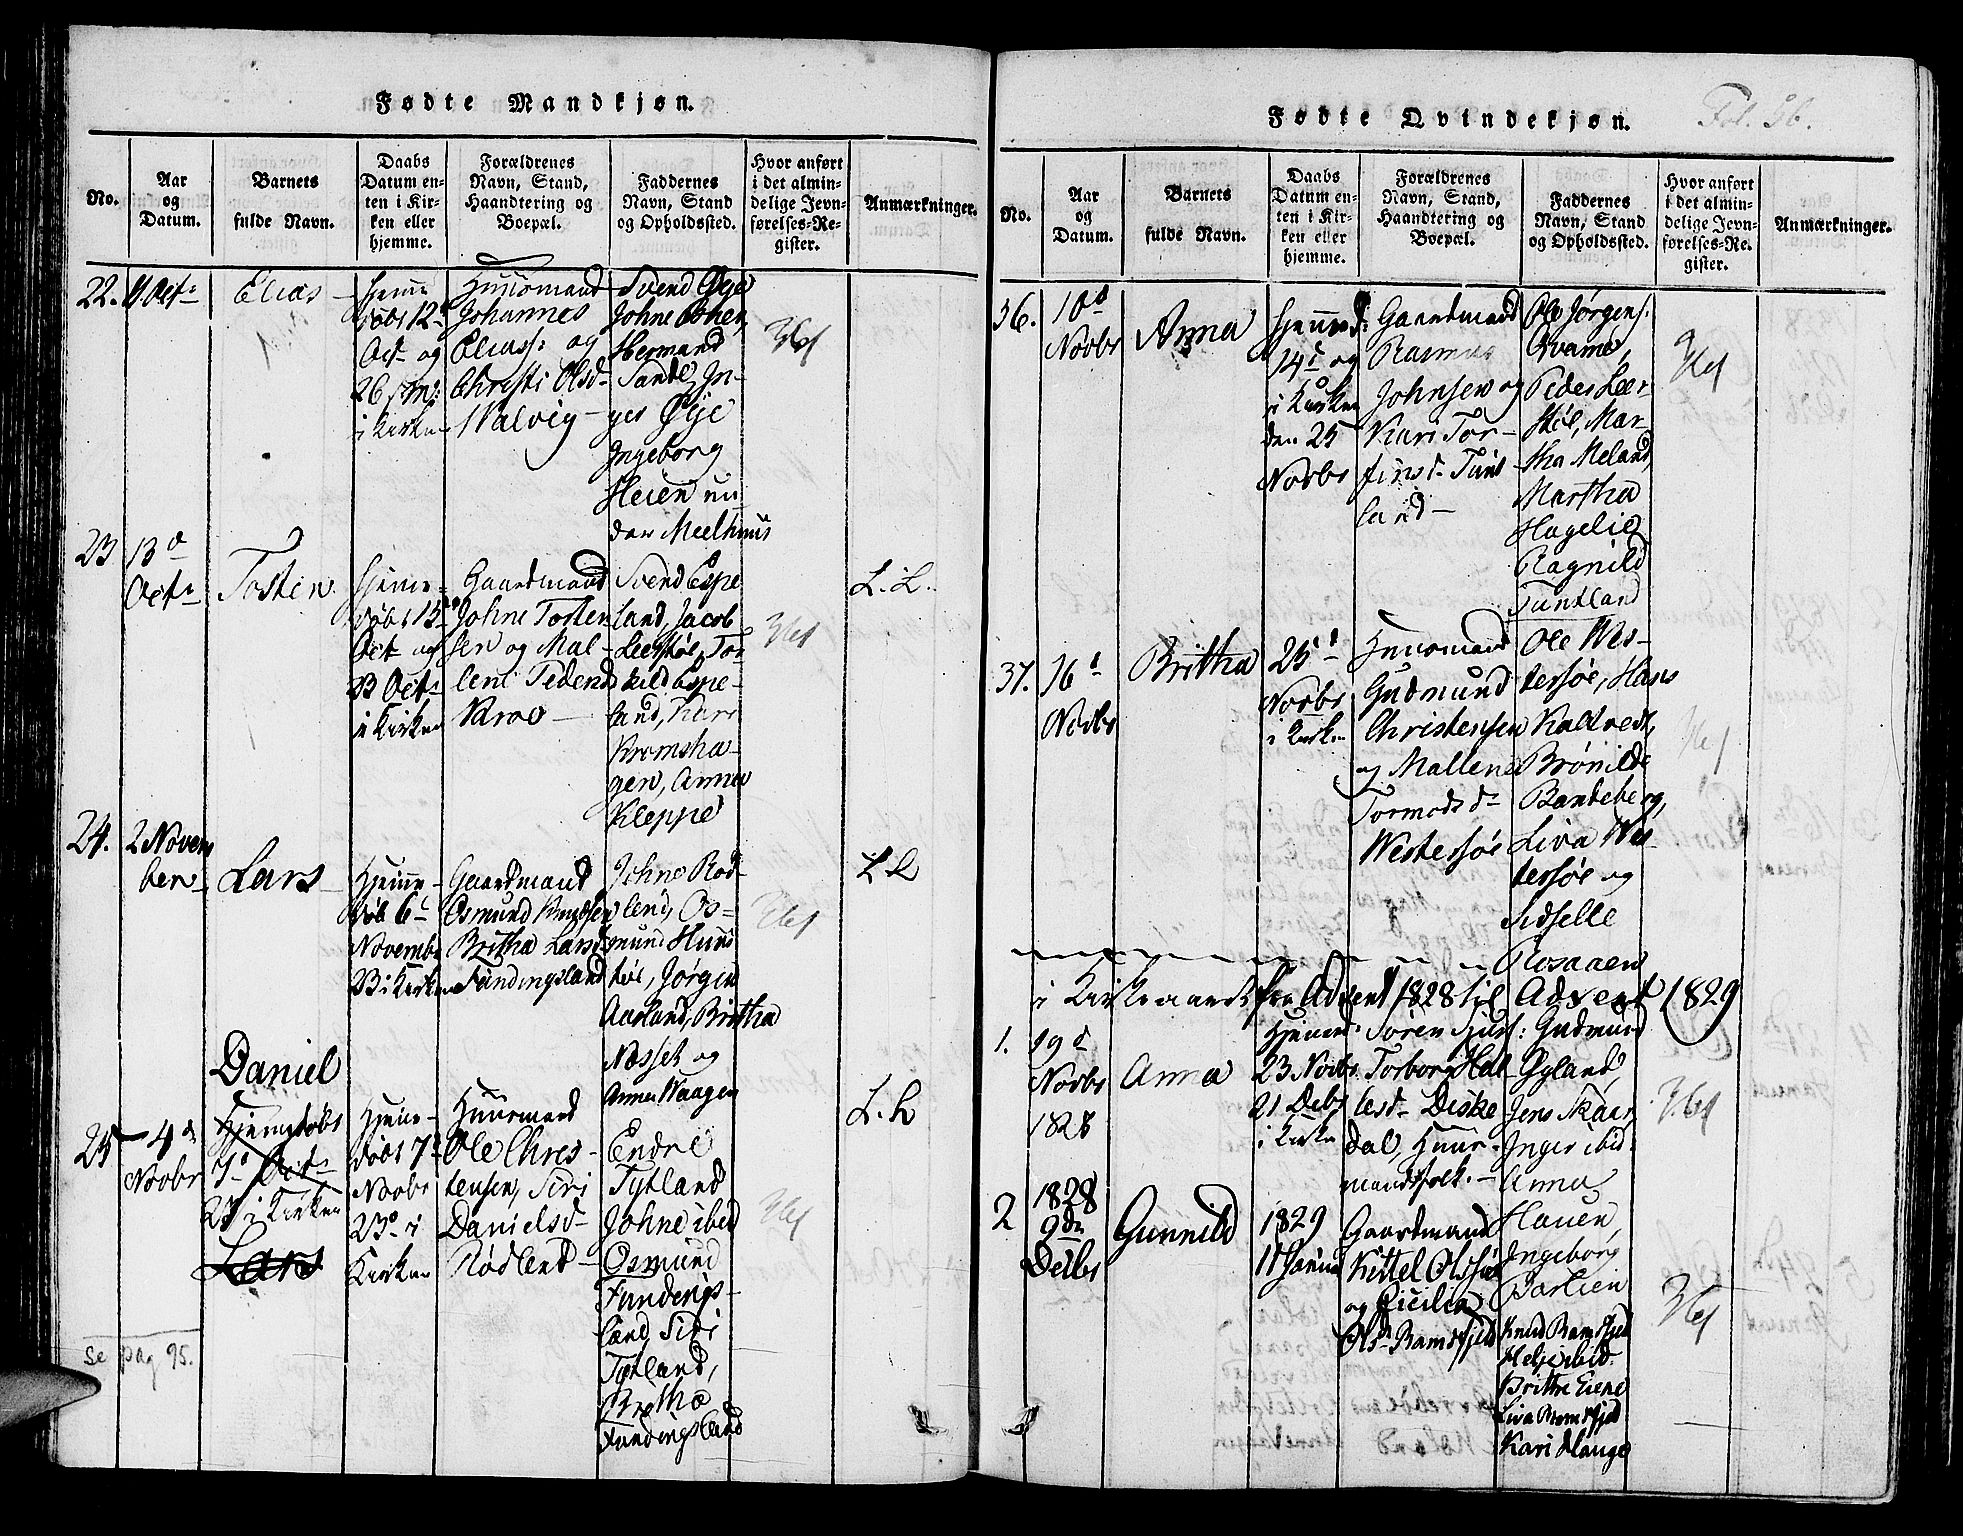 Fødte Mandkjøn.
No.
Aar
og
Datum.
Barnets
fulde Navn.
Daabs
Datum en-
ten i Kir-
ken eller
hjemme.
Forældrenes
Navn, Stand,
Haandtering og
Boepæl.
Faddernes
Navn, Stand
og Opholdssted.
Hvor anført
i det almin-
delige Jevn-
førelses-Re-
gister.
Anmærkninger.
22.
Oct
Elias
døbt 12
Oct og
26
i Kirken
Huusmand
Johannes
Eliass: og
Christi Olsd
Walvig
Svend Øye
Johne
Hermand
Sande, In-
ger Øye
Ingeborg
Heien un
der Meelhuus
23
13d
Oct
Tosten
Hjeme
døbt 15
Oct og
23 Oct
i Kirken
Gaardmand
Johne Tosten
sen og Mal
leni Peders
Svend Espe
land, Jacob
Leerskoe, Tor
kild Espe
land, Kari
Kromsha
gen, Anna
Kleppe
L. L.
24.
2 Novem
ber
Lars
Hjeme
døbt 6
Novembr
23 i Kirken
Gaardmand
Osmund Knudsen
Britha Larsd
Fundingsland
Johne Rød
lend, Os
mund Huus
toe, Jørgen
Aarland, Britha
Nosset og
Anna Waagen
L L
25
4d
Novbr
Daniel
Hjemdøbt
7d Oct
25 i Kirken
Lars
Hjeme
døbt 7
Novbr
23d i
Kirken
Huusmand
Ole Chres
tensen, Siri
Danielsd
Rødlend
Endre
Tytland
Johne ibid
Osmund
Fundings
land, Siri
Tytland,
Britha
Fundingsland
L. L
se pag 95.
Fødte Qvindekjøn.
Fol. 96.
No.
Aar
og
Datum.
Barnets
fulde Navn.
Daabs
Datum en-
ten i Kir-
ken eller
hjemme.
Forældrenes
Navn, Stand,
Haandtering og
Boepæl.
Faddernes
Navn, Stand
og Opholdssted.
Hvor anført
i det almin-
delige Jevn-
førelses-Re-
gister.
Anmærkninger.
36.
10d
Novbr
Anna
14d og
i Kirken
den 25
Novbr
Gaardmand
Rasmus
Johnsen og
Kari Tor
finsd Tunt
land
Ole Jørgens:
Qvame,
Peder Leer
skoe, Mar
tha Meland,
Martha
Hagelie
Ragnild
Tuntland
37.
16d
Novbr
Britha
25d
Novbr
i Kirken
Huusmand
Gudmund
Christensen
og Mallene
Tormodsd
Westersøe
Ole Wes
tersøe, Hans
Kaltvedt,
Brønilde
Bandeberg,
Liva Wes
tersøe og
Sidselle
Rosaaen
i Kirkeaaret fra Advent 1828 til Advent 1829
1.
19d
Novbr
1828
Anna
23 Novbr
21 Decbr
i Kirken
Søren
Torborg Hal
lesd Diske
dal, Huus
mandsfolk.
Gudmund
Gyland,
Jens Skaar,
Inger ibid
Anna
Hauen,
Ingeborg
Barlien
2
1828
9de
Decbr
Gunnild
1829
11 Januar
Gaardmand
Kittel Olss
og Cicilia
Olsd Ramsfjeld
Knud Ramsfjeld
Helje ibid.
Brithe Eiene
Liva Ramsfjeld
Kari Hauge